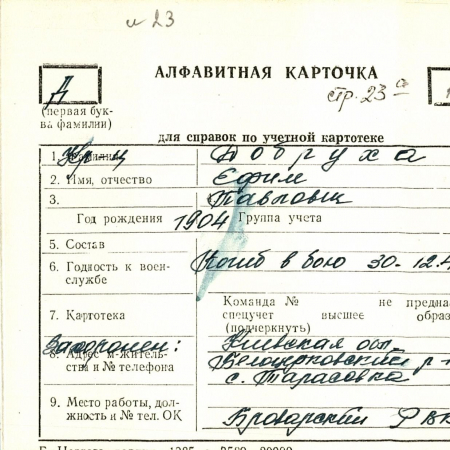 и 23
Д
АЛФАВИТНАЯ КАРТОЧКА
стр. 23 а
(первая бук-
ва фамилии)
для справок по учетной картотеке
1. Фамилия Кр-ц Добруха
2. Имя, отчество Ефим
3. Павлович
Год рождения 1904 Группа учета
5. Состав
6. Годность к воен-
службе
Погиб в бою 30.12.4
7. Картотека
Команда № не предна
спецучет высшее образ
(подчеркнуть)
Захоронен: Киевская обл.
8. Адрес м-житель-
ства и № телефона
Белоцерковский р-
с. Тарасовка
9. Место работы, дол-
жность и № тел. ОК
Броварский РВК